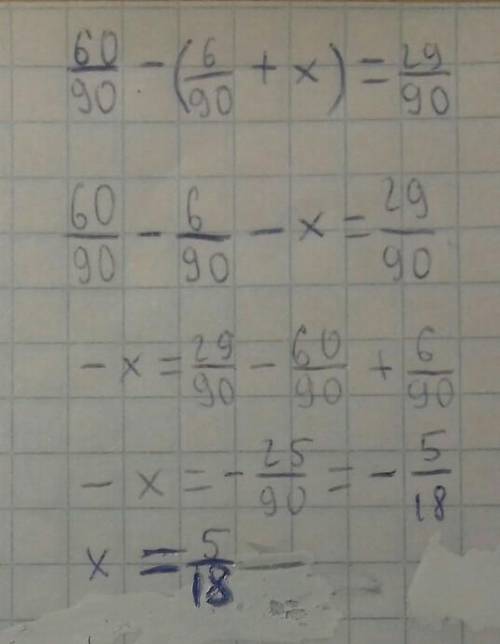 60/90 - (6/90 + x) = 29/90
60/90 - 6/90 - x = 29/90
- x = 29/90 - 60/90 + 6/90
- x = - 25/90 = - 5/18
x = 5/18